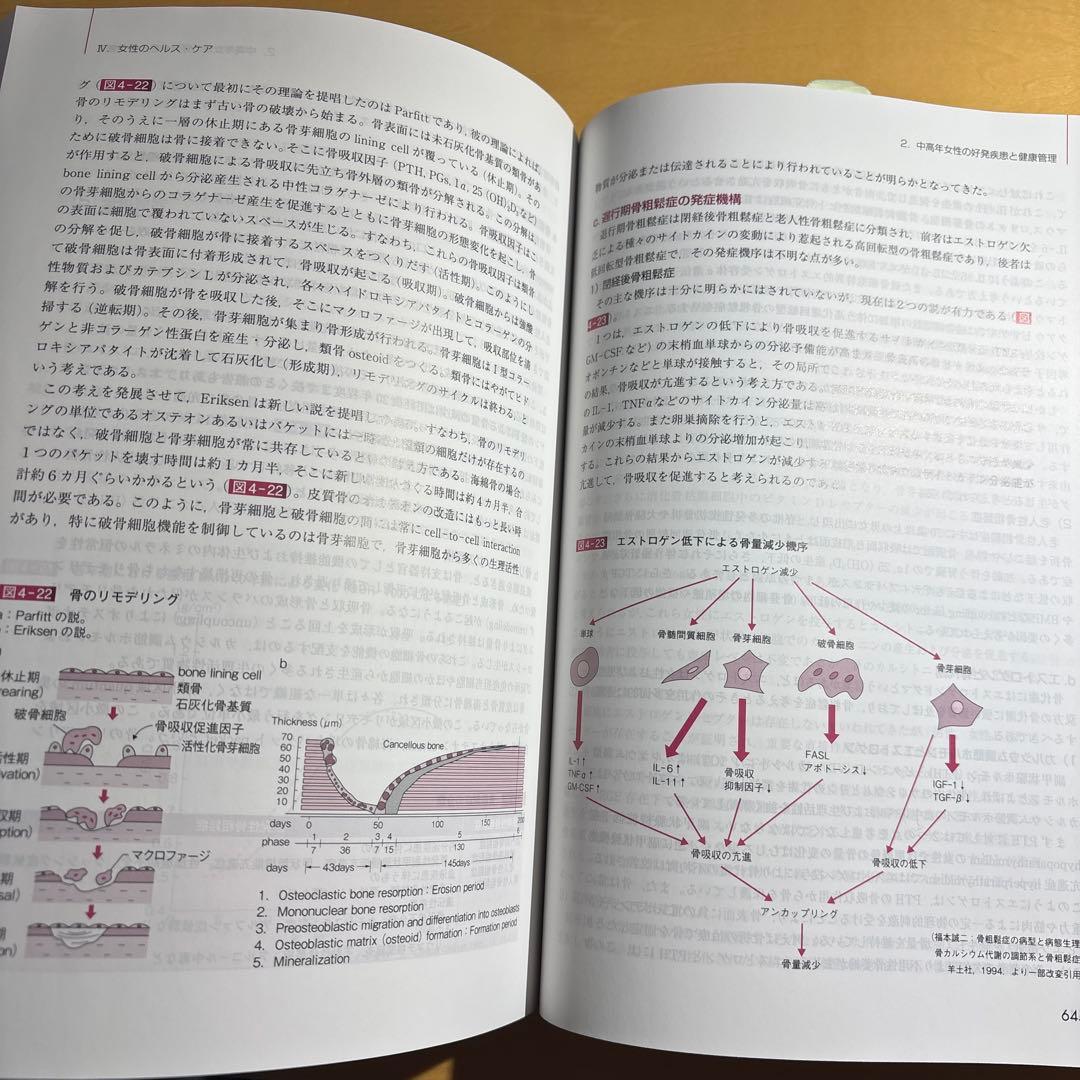 Ⅳ. 女性のヘルス・ケア
グ(図4-22)について最初にその理論を提唱したのは Parfitt であり,彼の理論によれば,
骨のリモデリングはまず古い骨の破壊から始まる。骨表面には未石灰化骨基質の類骨があ
り,そのうえに一層の休止期にある骨芽細胞の lining cell が覆っている(休止期)。その
ために破骨細胞は骨に接着できない。そこに骨吸収因子(PTH, PGs, 1α, 25(OH)₂D₃など)
が作用すると,破骨細胞による骨吸収に先立ち骨外層の類骨が分解される。この分解は,
bone lining cell から分泌産生される中性コラゲナーゼにより行われる。骨吸収因子はこ
の骨芽細胞からのコラゲナーゼ産生を促進するとともに骨芽細胞の形態変化を起こし,骨
の表面に細胞で覆われていないスペースが生じる。すなわち,これらの骨吸収因子は類骨
の分解を促し,破骨細胞が骨に接着するスペースをつくりだす(活性期)。このようにし
て破骨細胞は骨表面に付着形成されて,骨吸収が起こる(吸収期)。破骨細胞からは強酸
性物質およびカテプシン L が分泌され,各々ハイドロキシアパタイトとコラーゲンの分
解を行う。破骨細胞が骨を吸収した後,そこにマクロファージが出現して,吸収部位を清
掃する(逆転期)。その後,骨芽細胞が集まり骨形成が行われる。骨芽細胞はⅠ型コラー
ゲンと非コラーゲン性蛋白を産生・分泌し,類骨 osteoid をつくる。類骨にはやがてヒド
ロキシアパタイトが沈着して石灰化し(形成期),リモデリングのサイクルは終わる,と
いう考えである。
この考えを発展させて,Eriksen は新しい説を提唱した。すなわち,骨のリモデリ
ングの単位であるオステオンあるいはパケットには一時に 種類の細胞だけが存在するの
ではなく,破骨細胞と骨芽細胞が常に共存しているという え方である。海綿骨の場合,
1つのパケットを壊す時間は約1カ月半,そこに新しい骨をつくる時間は約4カ月半,合
計約6カ月ぐらいかかるという(図4-22)。皮質骨のオステオンの改造にはもっと長い時
間が必要である。このように,骨芽細胞と破骨細胞の間には常に cell-to-cell interaction
があり,特に破骨細胞機能を制御しているのは骨芽細胞で,骨芽細胞から多くの生理活性
図4-22 骨のリモデリング
a:Parfitt の説。
b:Eriksen の説。
休止期
(rearing)
bone lining cell
類骨
石灰化骨基質
破骨細胞
骨吸収促進因子
活性化骨芽細胞
性期
vation)
収期
ption)
マクロファージ
期
sal)
期
tion)
b
Thickness (μm)
70
60
50
40
30
20
10
Cancellous bone
days 0 50 100 150 200
phase 1 2 3 4 5
7 36 7 15 130
days 43days 145days
1. Osteoclastic bone resorption:Erosion period
2. Mononuclear bone resorption
3. Preosteoblastic migration and differentiation into osteoblasts
4. Osteoblastic matrix (osteoid) formation:Formation period
5. Mineralization
2. 中高年女性の好発疾患と健康管理
物質が分泌または伝達されることにより行われていることが明らかとなってきた。
c. 退行期骨粗鬆症の発症機構
退行期骨粗鬆症は閉経後骨粗鬆症と老人性骨粗鬆症に分類され,前者はエストロゲン欠
乏による種々のサイトカインの変動により惹起される高回転型の骨粗鬆症であり,後者は
低回転型骨粗鬆症で,その発症機序は不明な点が多い。
1) 閉経後骨粗鬆症
その主な機序は十分に明らかにはされていないが,現在は2つの説が有力である(図
4-23)。
1つは,エストロゲンの低下により骨吸収を促進するサイ
GM-CSF など)の末梢血単球からの分泌予備能が高まり
オポンチンなどと単球が接触すると,その局所で
の結果,骨吸収が亢進するという考え方である。
の IL-1, TNFα などのサイトカイン分泌量は
量が減少する。また卵巣摘除を行うと,エスト
カインの末梢血単球よりの分泌増加が起こり,
する。これらの結果からエストロゲンが減少す
亢進して,骨吸収を促進すると考えられるのである。
図4-23 エストロゲン低下による骨量減少機序
エストロゲン減少
単球
骨髄間質細胞
骨芽細胞
破骨細胞
骨芽細胞
IL-1↑
TNFα↑
GM-CSF↑
IL-6↑
IL-11↑
骨吸収
抑制因子↓
FASL
アポトーシス↓
IGF-1↓
TGF-β↓
骨吸収の亢進
骨吸収の低下
アンカップリング
骨量減少
(福本誠二:骨粗鬆症の病型と病態生理
骨カルシウム代謝の調節系と骨粗鬆症
羊土社, 1994. より一部改変引用
64